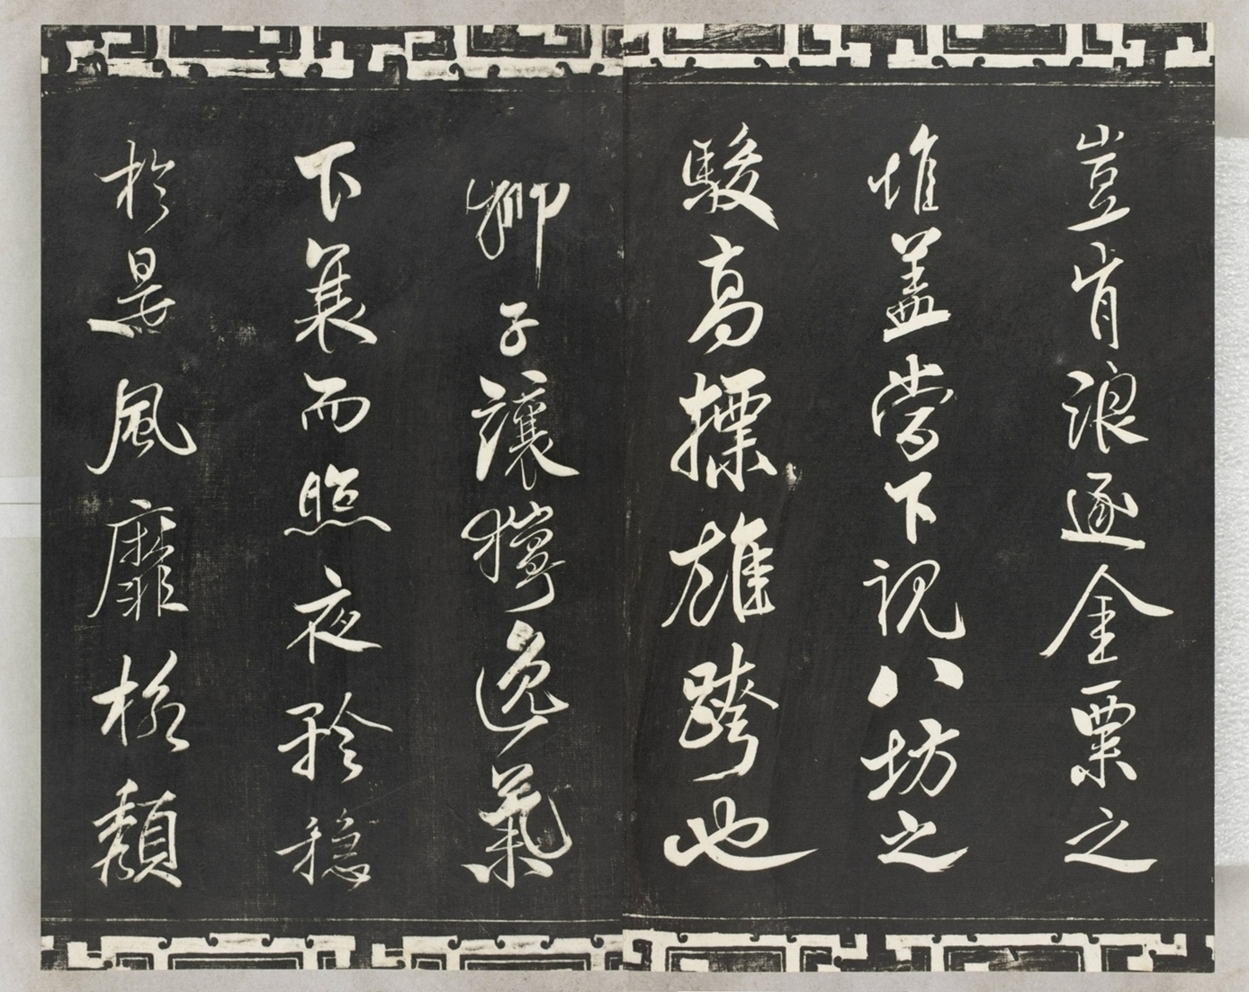 豈肯浪逐金粟之
堆盖當下視八坊之
駿高摽雄跨也
獅子讓獰逸氣
下襄而照夜矜穩
於是風靡格頹